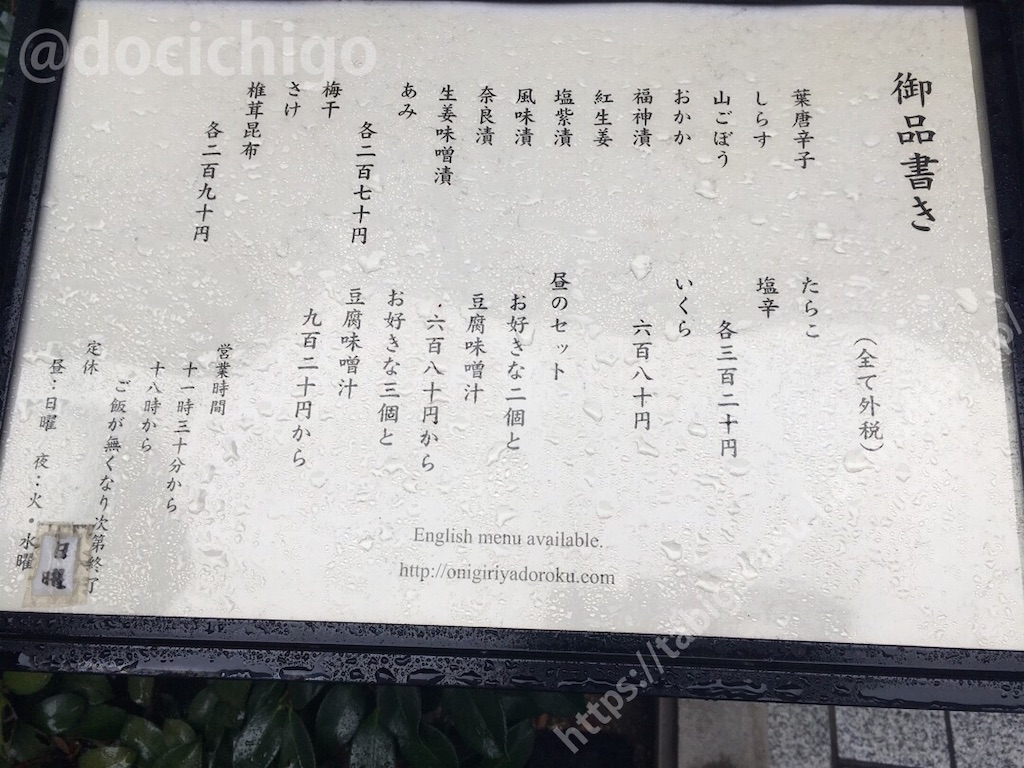 @docichigo
御品書き
(全て外税)
葉唐辛子
しらす
山ごぼう
おかか
福神漬
紅生姜
塩紫漬
風味漬
奈良漬
生姜味噌漬
あみ
各二百七十円
梅干
さけ
椎茸昆布
各二百九十円
たらこ
塩辛
各三百二十円
いくら
六百八十円
昼のセット
お好きな二個と
豆腐味噌汁
六百八十円から
お好きな三個と
豆腐味噌汁
九百二十円から
営業時間
十一時三十分から
十八時から
ご飯が無くなり次第終了
定休
昼：日曜 夜：火・水曜
日曜
English menu available.
http://onigiriyadoroku.com